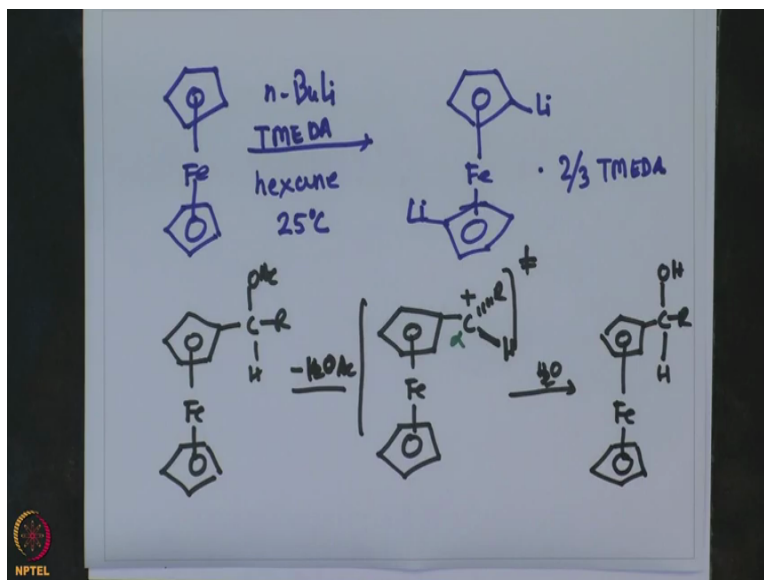 n-BuLi
TMEDA
hexane
25°C
Fe
Li
Fe
Li
· 2/3 TMEDA
OAc
C-R
H
Fe
+
C
R
α
H
‡
Fe
H₂O
OH
C-R
H
Fe
NPTEL